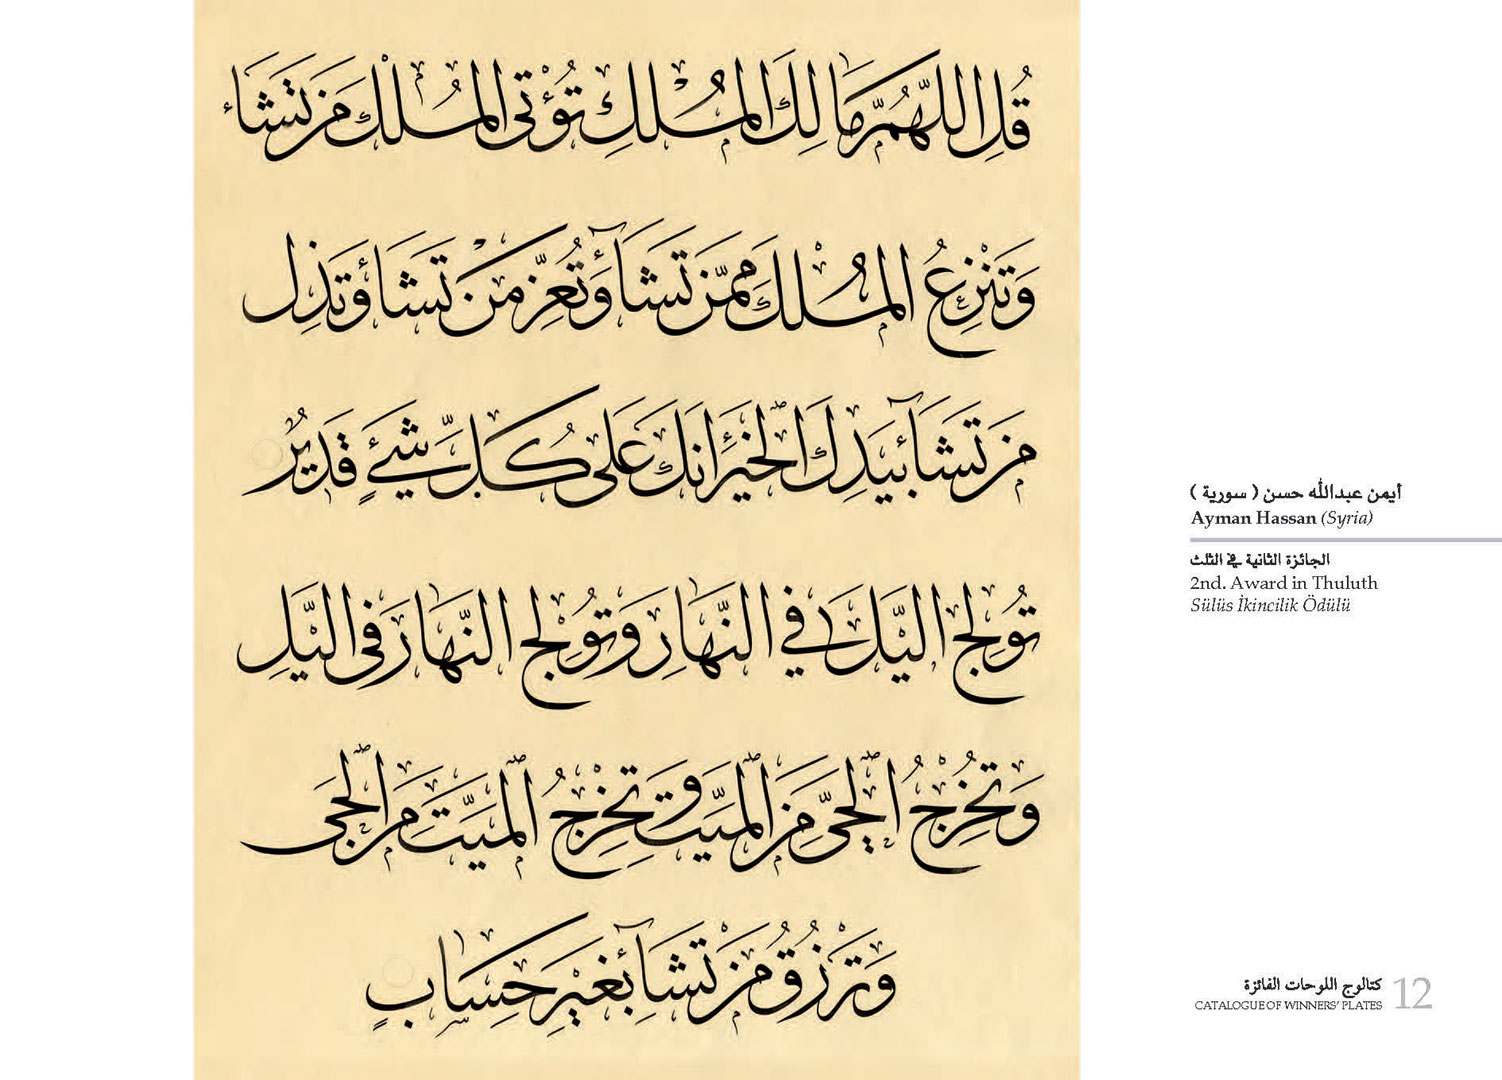 قُلِ اللّٰهُمَّ مَالِكَ الْمُلْكِ تُؤْتِي الْمُلْكَ مَنْ تَشَاء
وَتَنْزِعُ الْمُلْكَ مِمَّنْ تَشَآءُ وَتُعِزُّ مَنْ تَشَاءُ وَتُذِل
مَنْ تَشَآءُ بِيَدِكَ الْخَيْرُ اِنَّكَ عَلٰى كُلِّ شَيْءٍ قَدِيرٌ
تُولِجُ الَّيْلَ فِي النَّهَارِ وَتُولِجُ النَّهَارَ فِي الَّيْلِ
وَتُخْرِجُ الْحَيَّ مِنَ الْمَيِّتِ وَتُخْرِجُ الْمَيِّتَ مِنَ الْحَيِّ
وَتَرْزُقُ مَنْ تَشَآءُ بِغَيْرِ حِسَابٍ
أيمن عبدالله حسن ( سورية )
Ayman Hassan (Syria)
الجائزة الثانية في الثلث
2nd. Award in Thuluth
Sülüs İkincilik Ödülü
كتالوج اللوحات الفائزة
CATALOGUE OF WINNERS' PLATES 12